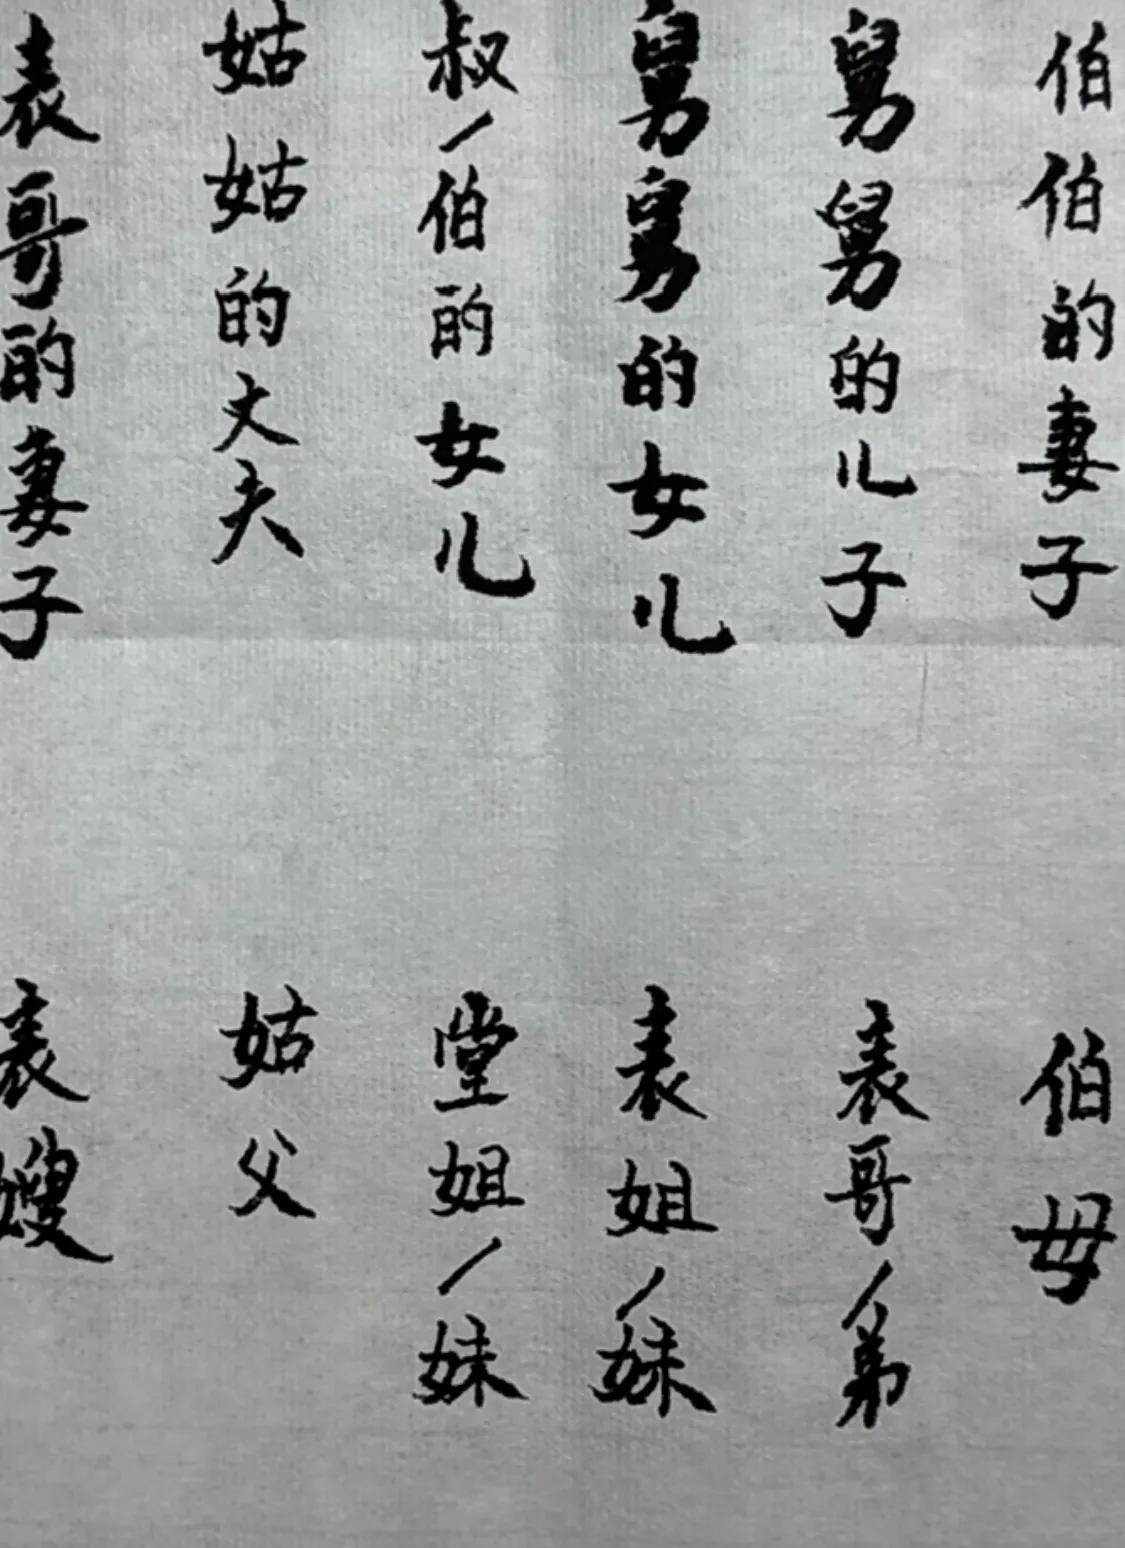 伯伯的妻子
伯母
舅舅的儿子
表哥/弟
舅舅的女儿
表姐/妹
叔/伯的女儿
堂姐/妹
姑姑的丈夫
姑父
表哥的妻子
表嫂